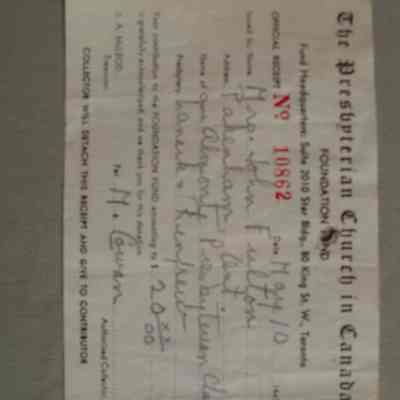 The Presbyterian Church in Canada
FOUNDATION FUND
Fund Headquarters: Suite 2010 Star Bldg., 80 King St. W., Toronto
OFFICIAL RECEIPT No 10862 Date May 10
Issued to: Name Mrs. John Fulton
Address Pakenham Ont
Name of Cong. Almonte Presbyterian
Presbytery Lanark & Renfrew
Your contribution to the FOUNDATION FUND according to $ 20 00
is gratefully acknowledged and we thank you for this donation
Treasurer Per M. Cowan Authorized Collector
COLLECTOR WILL DETACH THIS RECEIPT AND GIVE TO CONTRIBUTOR